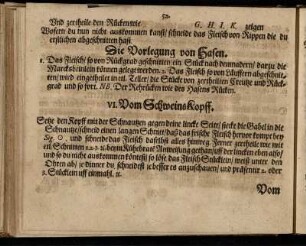 52.
Vnd zertheile den Rückenwie G. H. I. K. zeigen
Wofern du nun nicht auskommen kanst/ schneide das Fleisch von Rippen die du
erstlichen abgeschnitten hast
Die Vorlegung von Hasen.
1. Das Fleisch/ so vom Rückgrad geschnitten/ ein Stück nach dem andern/ darzu die
Marcksbeinlein können gelegt werden. 2. Das Fleisch so von Läufften abgeschnitten/
wird eingetheilet in itl. Teller/ die Stücke von zertheilten Creutze und Rückgrad
und so fort. NB. Der Rehrücken wie des Hasens Rücken.
VI. Vom Schweins Kopff.
Setze den Kopff mit der Schnautzen gegen deine lincke Seite/ stecke die Gabel in die
Schnautze/ schneid einen langen Schnitt/ daß das frische Fleisch hervor kompt bey
Sig. ⊙. und schneide das Fleisch daselbst alles hinweg. Ferner zertheile wie mit
und so du nicht auskommen köntest/ so löse das Fleisch Stücklein/ weiß unter den
Ohren ab/ je dünner du schneidest/ je besser es anzuschauen/ und præsentir 2. oder
3. Stücklein uff einmahl.
Vom